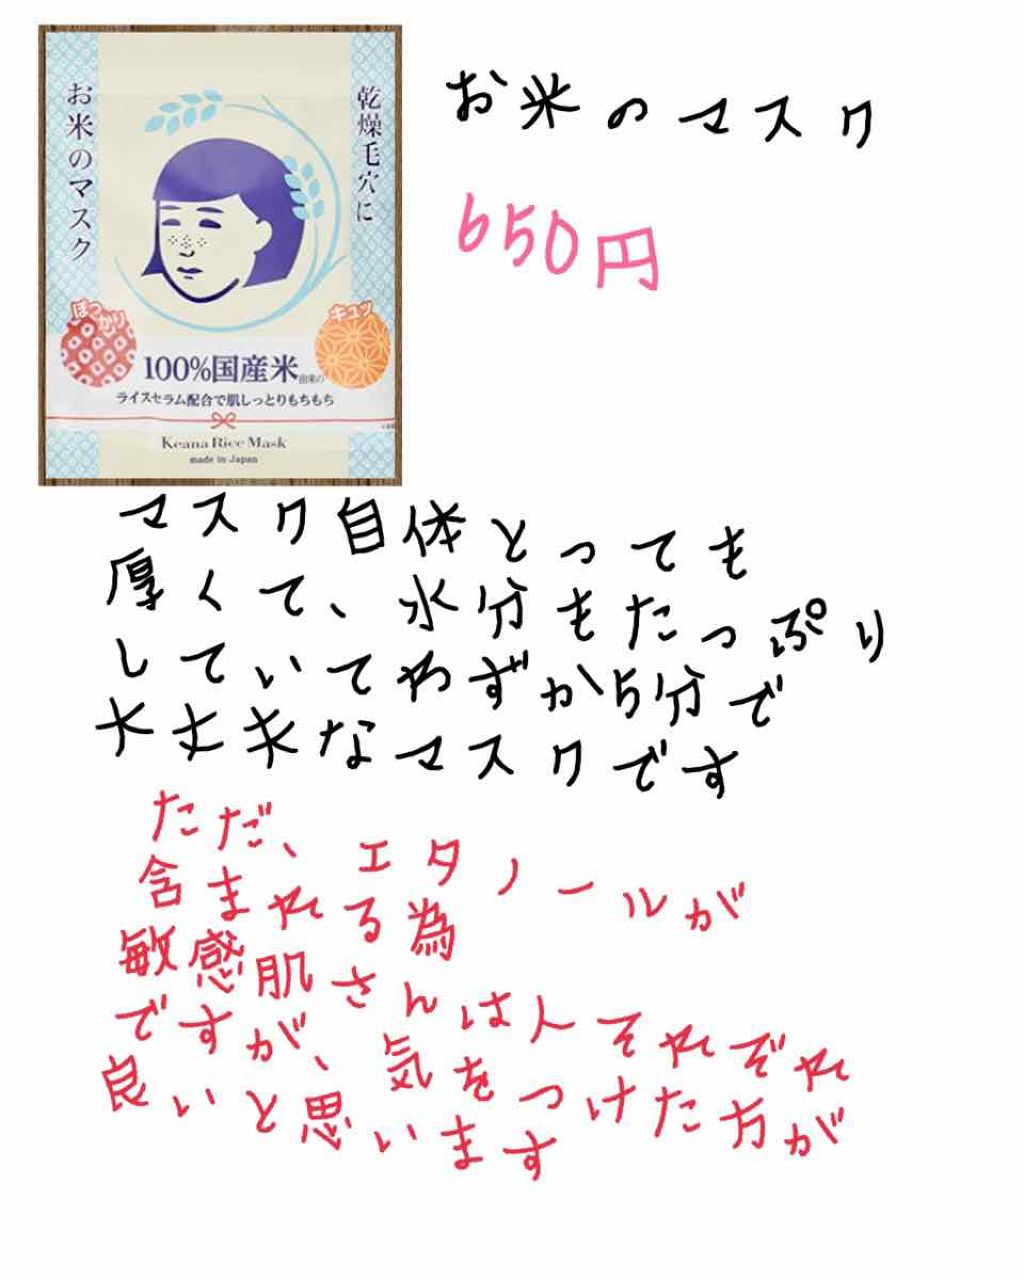 お米のマスク
乾燥毛穴に
ぽっかり
キュッ
100%国産米由来の
ライスセラム配合で肌しっとりもちもち
Keana Rice Mask
made in Japan
お米のマスク
650円
マスク自体とっても
厚くて、水分もたっぷり
していてわずか5分で
大丈夫なマスクです
ただ、エタノールが
含まれる為
敏感肌さんは人それぞれ
ですが、気をつけた方が
良いと思います